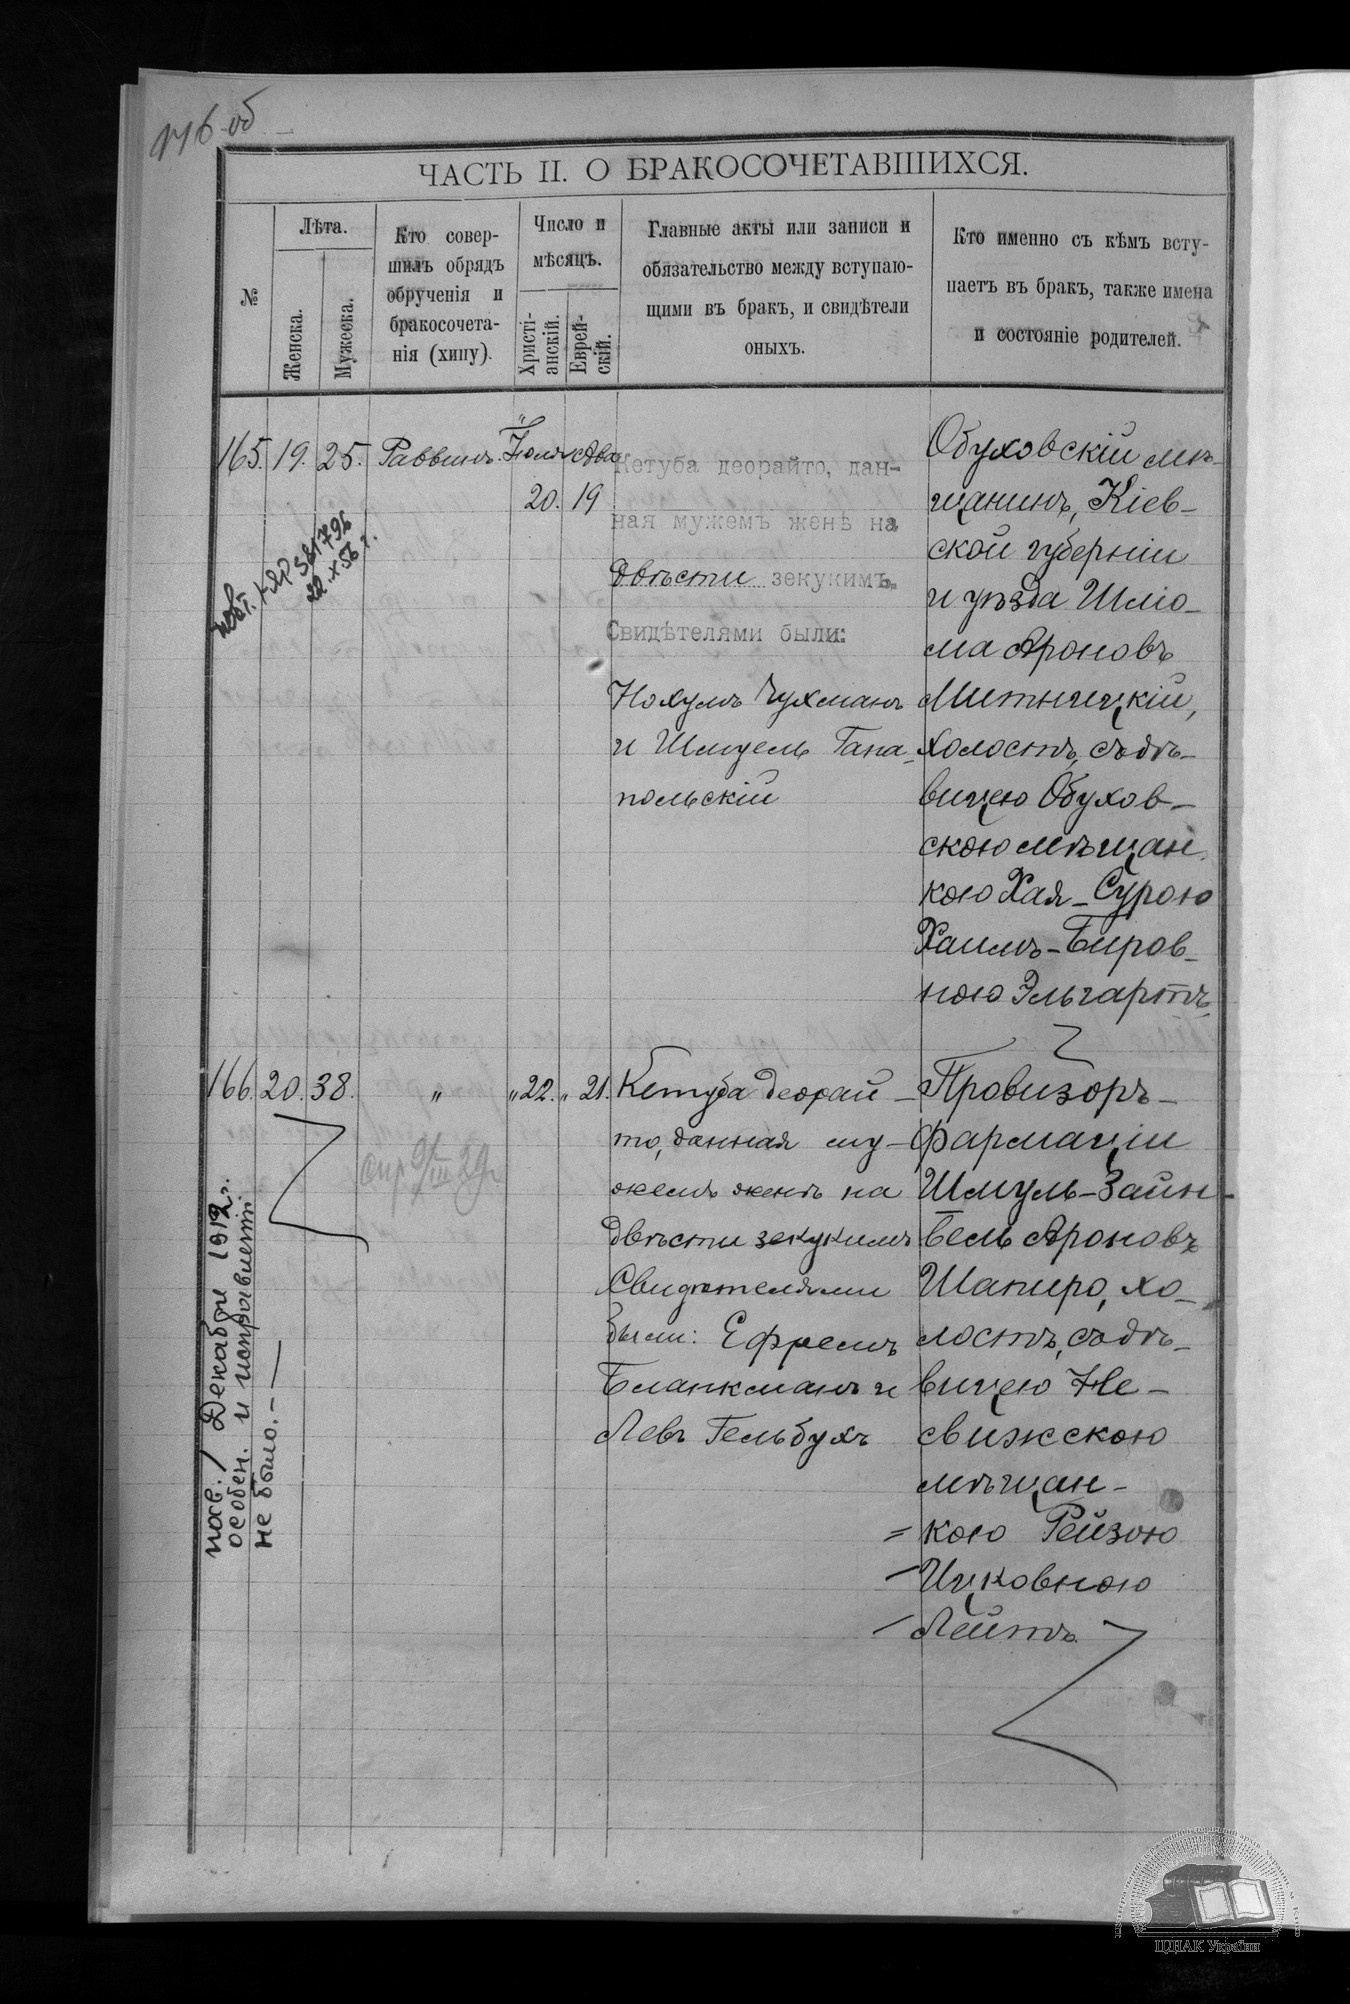 146 об
ЧАСТЬ II. О БРАКОСОЧЕТАВШИХСЯ.
№
Лѣта.
Женска.
Мужеска.
Кто совер-
шилъ обрядъ
обрученія и
бракосочета-
нія (хипу).
Число и
мѣсяцъ.
Христі-
анскій.
Еврей-
скій.
Главные акты или записи и
обязательство между вступаю-
щими въ бракъ, и свидѣтели
оныхъ.
Кто именно съ кѣмъ всту-
паетъ въ бракъ, также имена
и состояніе родителей.
165. 19. 25. Раввинъ. Іюля
20. 19
Кетуба деорайто, дан-
ная мужемъ женѣ на
двѣсти зекукимъ.
Свидѣтелями были:
Нохумъ Чухманъ
и Шмуель Гапа-
польскій
Обуховскій мѣ-
щанинъ, Кіев-
ской губерніи
и уѣзда Шліо-
ма Ароновъ
Митницкій,
холостъ, съ дѣ-
вицею Обухов-
скою мѣщан-
кою Хая-Сурою
Хаимъ-Беров-
ною Эльгартъ.
повт.
22.X 56 г.
166. 20. 38. " " 22. " 21.
Кетуба деорай-
то, данная му-
жемъ женѣ на
двѣсти зекукимъ
Свидѣтелями
были: Ефремъ
Бланкманъ и
Левъ Гельбухъ
Провизоръ-
фармаціи
Шмуль-Зайн-
вель Ароновъ
Шапиро, хо-
лостъ, съ дѣ-
вицею Не-
свижскою
мѣщан-
= кою Рейзою
- Ицковною
- Лейтъ.
Декабря 1912 г.
особен. и исправленій
не было. -
ЦДІАК України